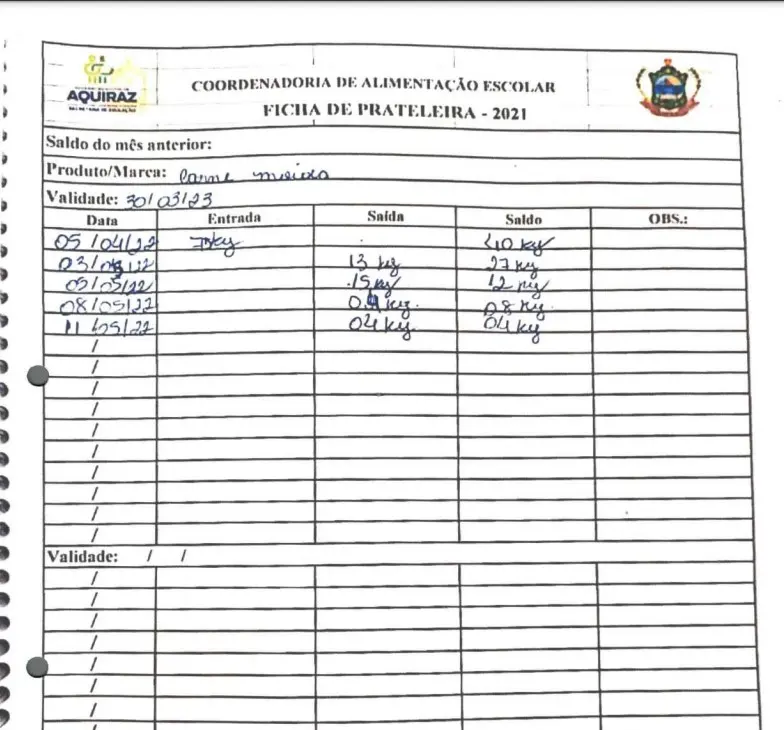 AQUIRAZ
COORDENADORIA DE ALIMENTAÇÃO ESCOLAR
FICHA DE PRATELEIRA - 2021
Saldo do mês anterior:
Produto/Marca: Carne moida
Validade: 30/03/23
Data Entrada Saída Saldo OBS.:
05/04/22 40 kg
03/05/22 13 kg 27 kg
05/05/22 15 kg 12 kg
08/05/22 04 kg. 08 kg.
11/05/22 04 kg 04 kg
/
/
/
/
/
/
/
/
/
/
Validade: / /
/
/
/
/
/
/
/
/